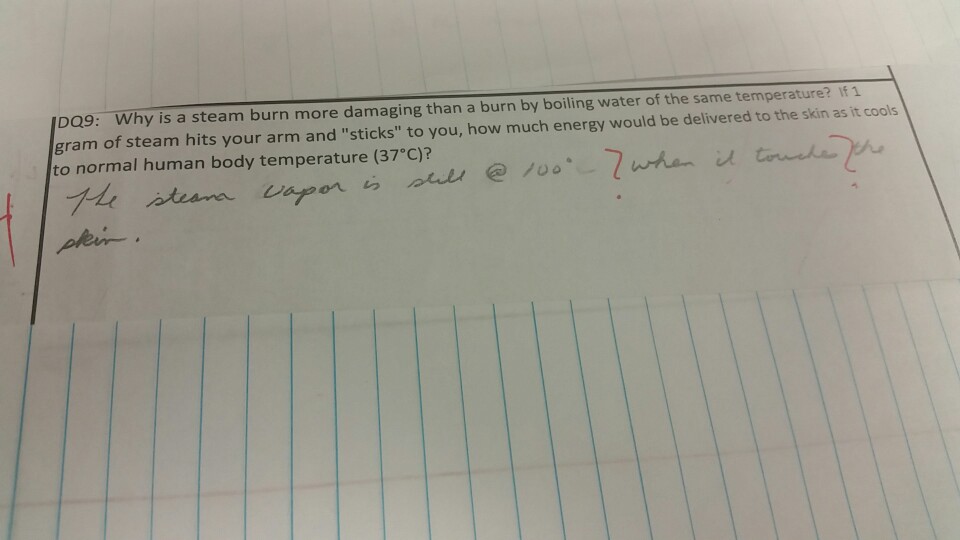 DQ9: Why is a steam burn more damaging than a burn by boiling water of the same temperature? If 1
gram of steam hits your arm and "sticks" to you, how much energy would be delivered to the skin as it cools
to normal human body temperature (37°C)?
The steam vapor is still @ 100° ? when it touches ? the
skin.